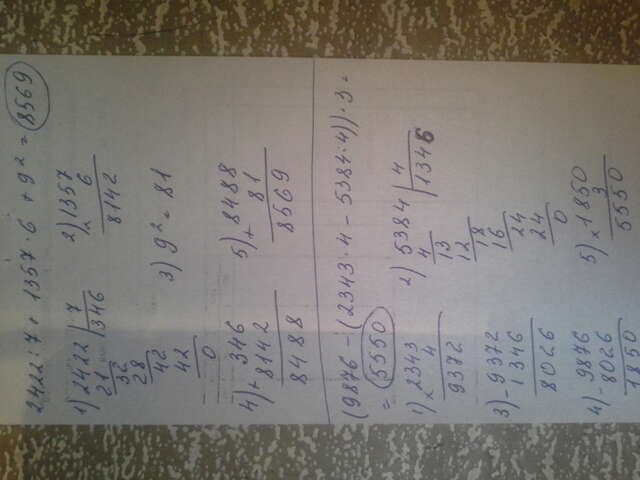 2422:7+1357·6+9²=8569
1) 2422 | 7
21 | 346
32
28
42
42
0
2) 1357
× 6
8142
3) 9²=81
4) + 346
8142
8488
5) + 8488
81
8569
(9876-(2343·4-5384:4))·3=
=5550
1) × 2343
4
9372
2) 5384 | 4
4 | 1346
13
12
18
16
24
24
0
3) - 9372
1346
8026
4) - 9876
8026
1850
5) × 1850
3
5550